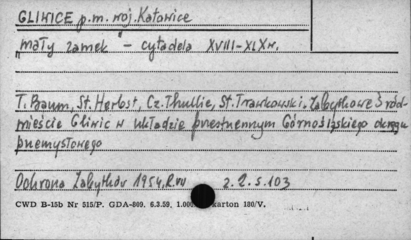 GLIWICE p.m. woj. Katowice
"mały zamek" – cytadela XVIII–XIX w.
T. Baum, St. Herbst, Cz. Thullie, St. Trawkowski, Zabytkowe Śród-
mieście Gliwic w układzie przestrzennym Górnośląskiego okręgu
przemysłowego
Ochrona Zabytków 1954, R. VII z. 2. s. 103
CWD B-15b Nr 515/P. GDA-809. 6.3.59, 1.000 karton 180/V.